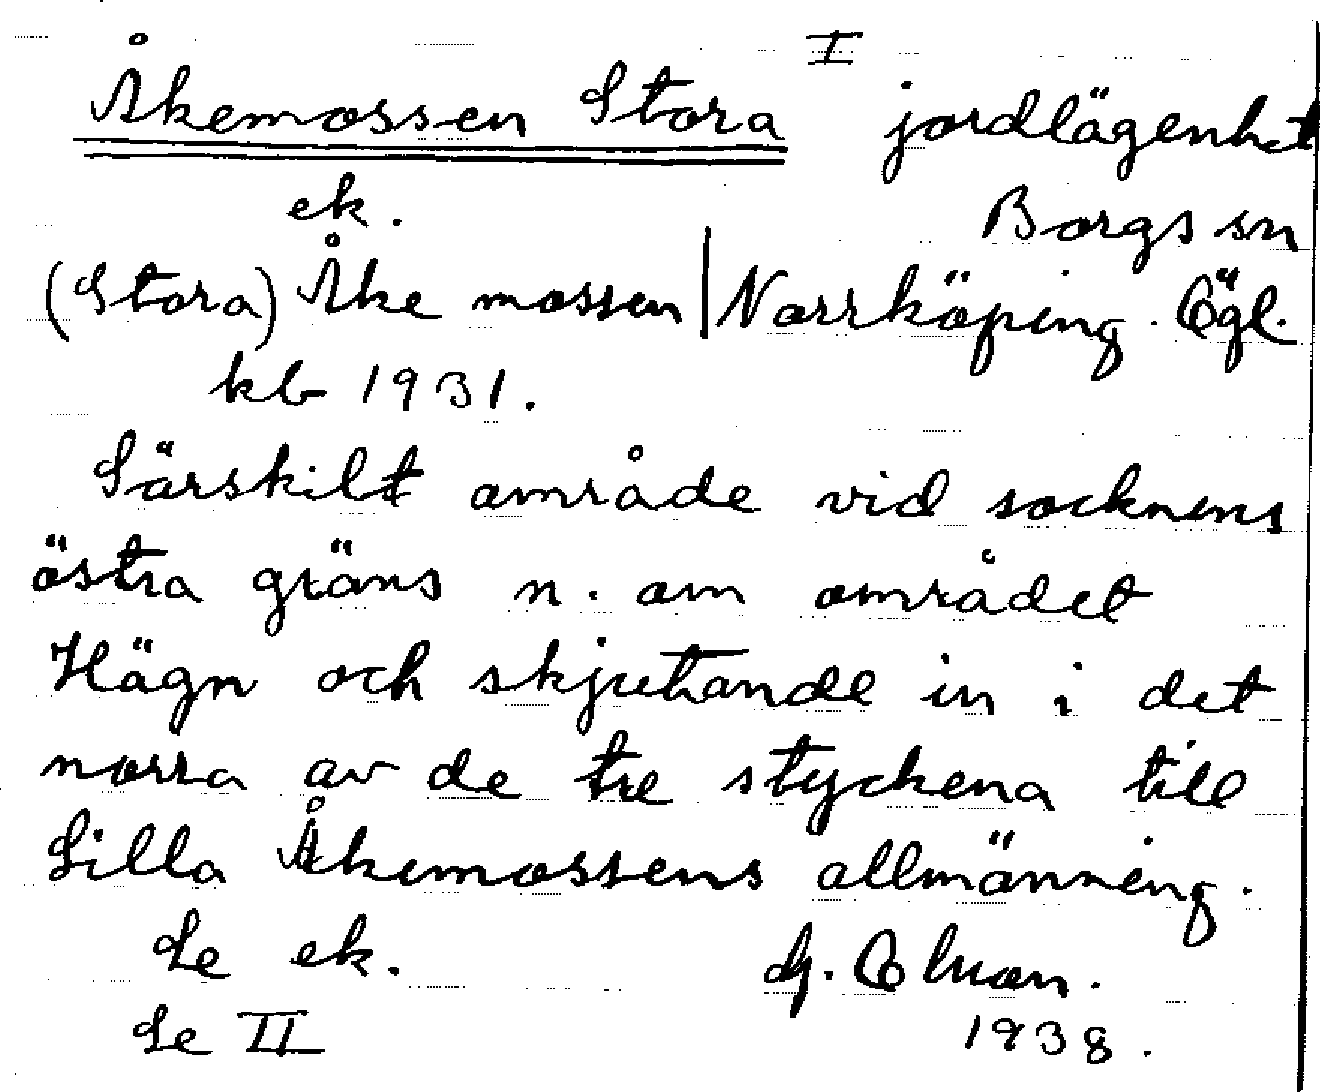 Åkemossen Stora I jordlägenhet
ek. Borgs sn
(Stora) Åke mossen | Norrköping. Ögl.
kb 1931.
Särskilt område vid socknens
östra gräns n. om området
Hägn och skjutande in i det
norra av de tre styckena till
Lilla Åkemossens allmänning.
Se ek. G. Olman.
Se II 1938.